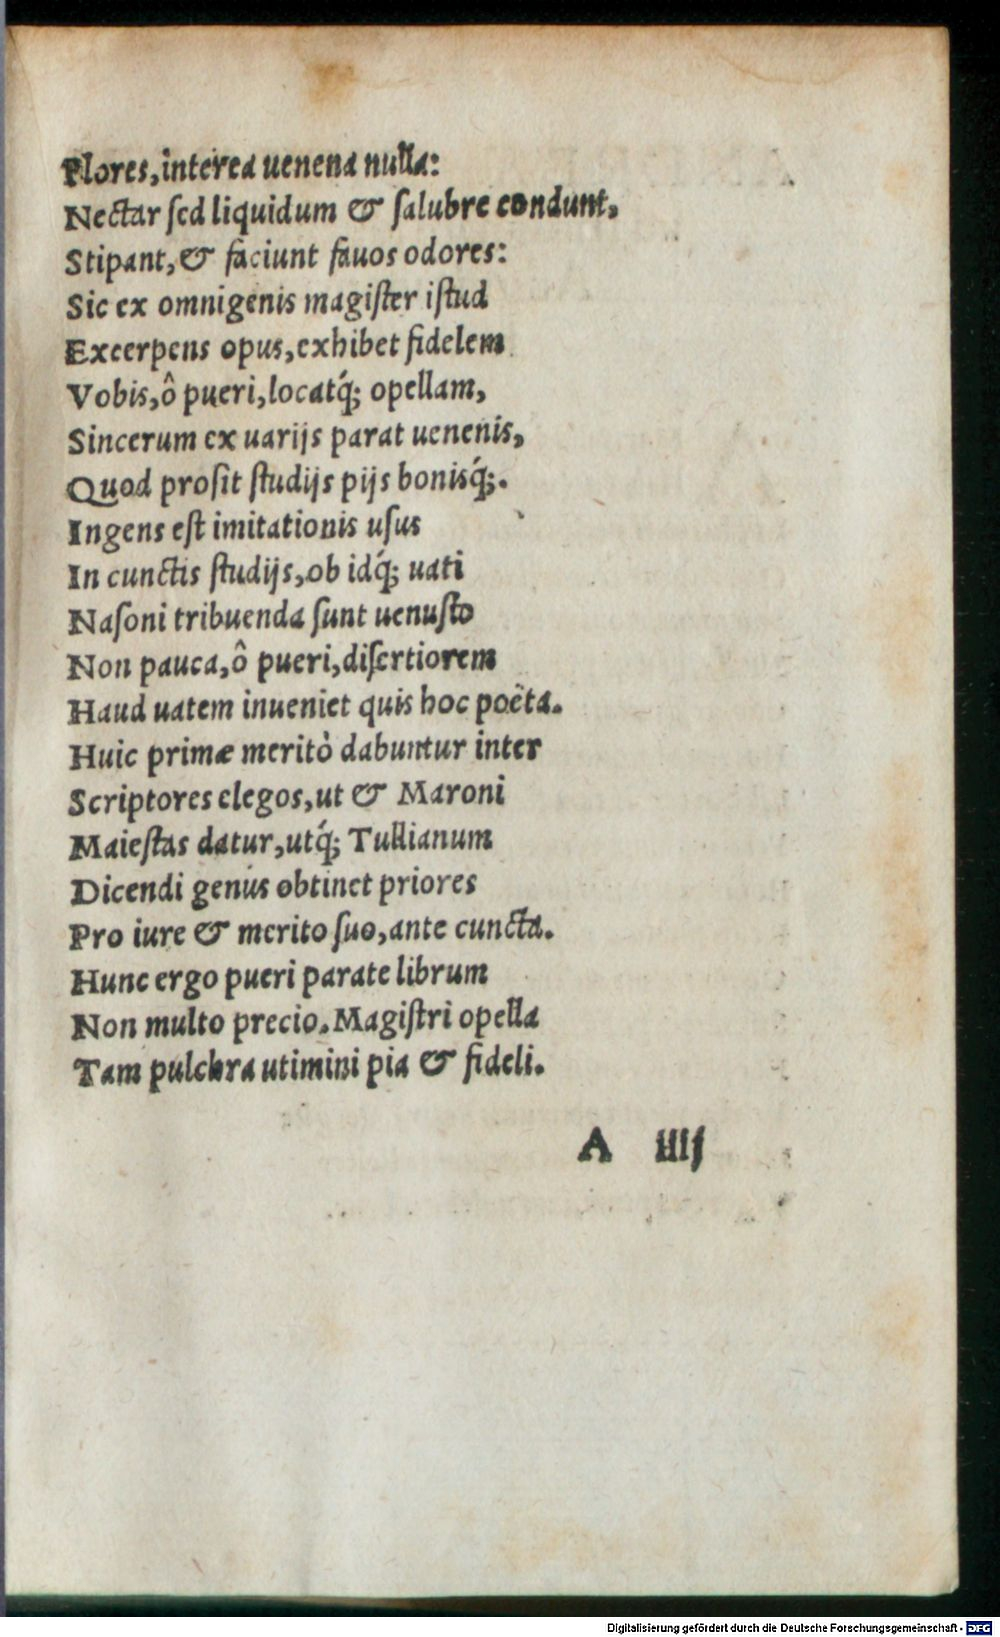 Flores, interea uenena nulla:
Nectar sed liquidum & salubre condunt,
Stipant, & faciunt fauos odores:
Sic ex omnigenis magister istud
Excerpens opus, exhibet fidelem
Vobis, ô pueri, locatq́; opellam,
Sincerum ex uarijs parat uenenis,
Quod prosit studijs pijs bonisq́;.
Ingens est imitationis usus
In cunctis studijs, ob idq́; uati
Nasoni tribuenda sunt uenusto
Non pauca, ô pueri, disertiorem
Haud uatem inueniet quis hoc poëta.
Huic primæ meritò dabuntur inter
Scriptores elegos, ut & Maroni
Maiestas datur, utq́; Tullianum
Dicendi genus obtinet priores
Pro iure & merito suo, ante cuncta.
Hunc ergo pueri parate librum
Non multo precio. Magistri opella
Tam pulchra utimini pia & fideli.
A iiij
Digitalisierung gefördert durch die Deutsche Forschungsgemeinschaft - DFG